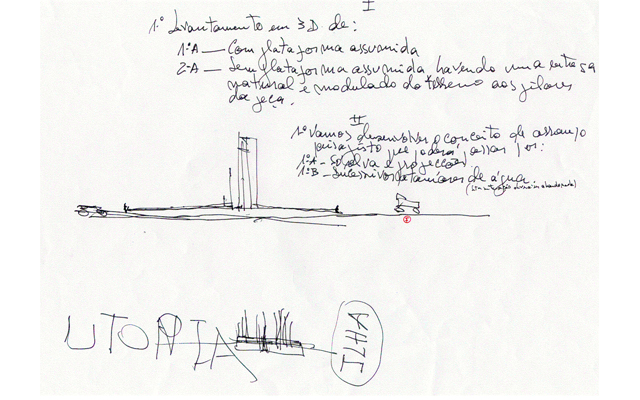 I
1º Levantamento em 3D de:
1º A — Com plataforma assumida
2-A — Sem plataforma assumida havendo uma
natural e modulado do terreno aos pilares
da peça.
II
1º Vamos desenvolver o conceito de arranjo
paisagísto que poderá passar por:
1ª A - Só relva e projecções
1ª B - Sucessivos de água
UTOPIA
ILHA